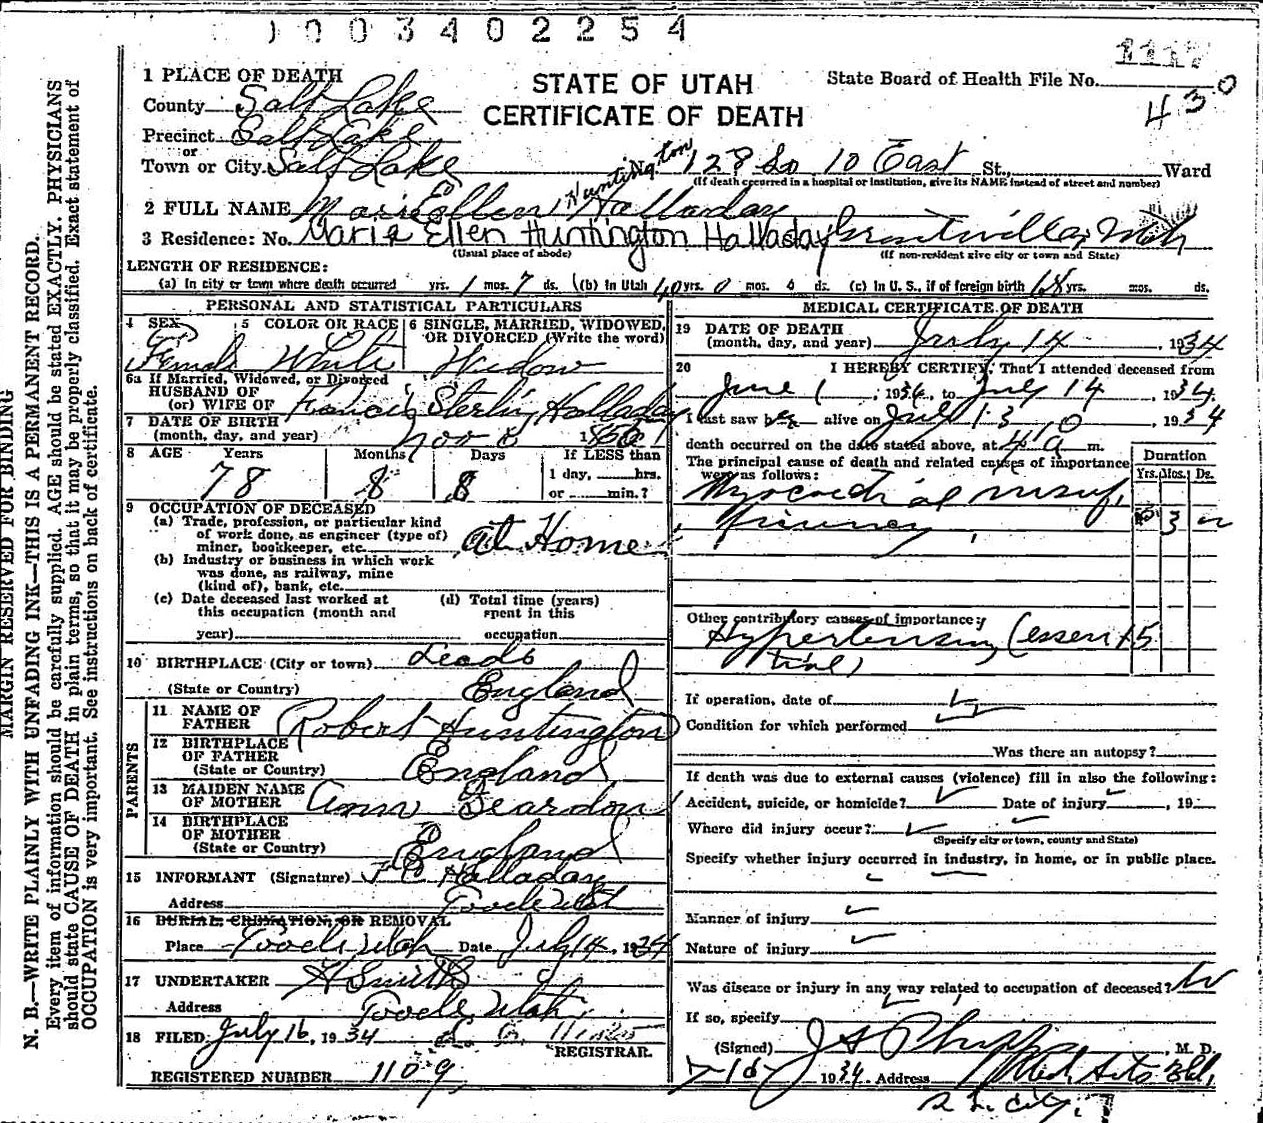 ) 0 0 3 4 0 2 2 5 4
1 PLACE OF DEATH
STATE OF UTAH
CERTIFICATE OF DEATH
State Board of Health File No.
430
County Salt Lake
Precinct Salt Lake
or
Town or City Salt Lake No. 128 So 10 East St., Ward
(If death occurred in a hospital or institution, give its NAME instead of street and number)
Huntington
2 FULL NAME Marie Ellen Halladay
3 Residence: No. Maria Ellen Huntington Halladay Grantsville, Utah
(Usual place of abode) (If non-resident give city or town and State)
LENGTH OF RESIDENCE:
(a) In city or town where death occurred yrs. 1 mos. 7 ds. (b) In Utah yrs. 0 mos. ds. (c) In U. S., if of foreign birth yrs. mos. ds.
PERSONAL AND STATISTICAL PARTICULARS
4 SEX 5 COLOR OR RACE 6 SINGLE, MARRIED, WIDOWED, OR DIVORCED (Write the word)
Female White Widow
6a If Married, Widowed, or Divorced
HUSBAND OF
(or) WIFE OF Francis Sterling Halladay
7 DATE OF BIRTH
(month, day, and year) Nov
8 AGE Years Months Days If LESS than
78 8 8 1 day, hrs.
or min.?
9 OCCUPATION OF DECEASED
(a) Trade, profession, or particular kind
of work done, as engineer (type of)
miner, bookkeeper, etc. At Home
(b) Industry or business in which work
was done, as railway, mine
(kind of), bank, etc.
(c) Date deceased last worked at
this occupation (month and
year)
(d) Total time (years)
spent in this
occupation
10 BIRTHPLACE (City or town) Leeds
(State or Country) England
PARENTS
11 NAME OF
FATHER Robert Huntington
12 BIRTHPLACE
OF FATHER
(State or Country) England
13 MAIDEN NAME
OF MOTHER Ann
14 BIRTHPLACE
OF MOTHER
(State or Country) England
15 INFORMANT (Signature) Halladay
Address Tooele Utah
16 BURIAL, CREMATION, OR REMOVAL
Place Tooele, Utah Date July 14, 1934
17 UNDERTAKER Smith
Address Tooele, Utah
18 FILED July 16, 1934
REGISTRAR.
REGISTERED NUMBER 1109
MEDICAL CERTIFICATE OF DEATH
19 DATE OF DEATH
(month, day, and year) July 14, 1934
20 I HEREBY CERTIFY, That I attended deceased from
June 1, 1934, to July 14, 1934
I last saw her alive on July 13, 1934
death occurred on the date stated above, at m.
The principal cause of death and related causes of importance
were as follows:
Duration
Yrs. Mos. Ds.
Myocardial insuf-
ficiency 3
Other contributory causes of importance:
Hypertension (essen 15
tial)
If operation, date of
Condition for which performed
Was there an autopsy?
If death was due to external causes (violence) fill in also the following:
Accident, suicide, or homicide? Date of injury , 19
Where did injury occur?
(Specify city or town, county and State)
Specify whether injury occurred in industry, in home, or in public place.
Manner of injury
Nature of injury
Was disease or injury in any way related to occupation of deceased?
If so, specify
(Signed) , M. D.
1934 Address Med. Arts Bld.
S. L. City.
MARGIN RESERVED FOR BINDING
N. B.—WRITE PLAINLY WITH UNFADING INK—THIS IS A PERMANENT RECORD.
Every item of information should be carefully supplied. AGE should be stated EXACTLY. PHYSICIANS
should state CAUSE OF DEATH in plain terms, so that it may be properly classified. Exact statement of
OCCUPATION is very important. See instructions on back of certificate.